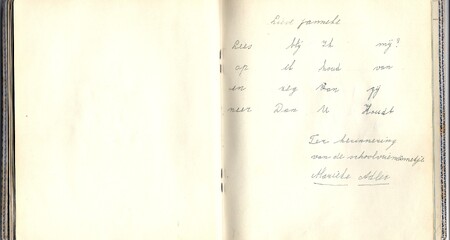 Lieve
Lees blij Ik mij?
op ik houd van
en zeg Van gij
neer Dan U Houdt
Ter herinnering
van de schoolvriendinnetje
Adler